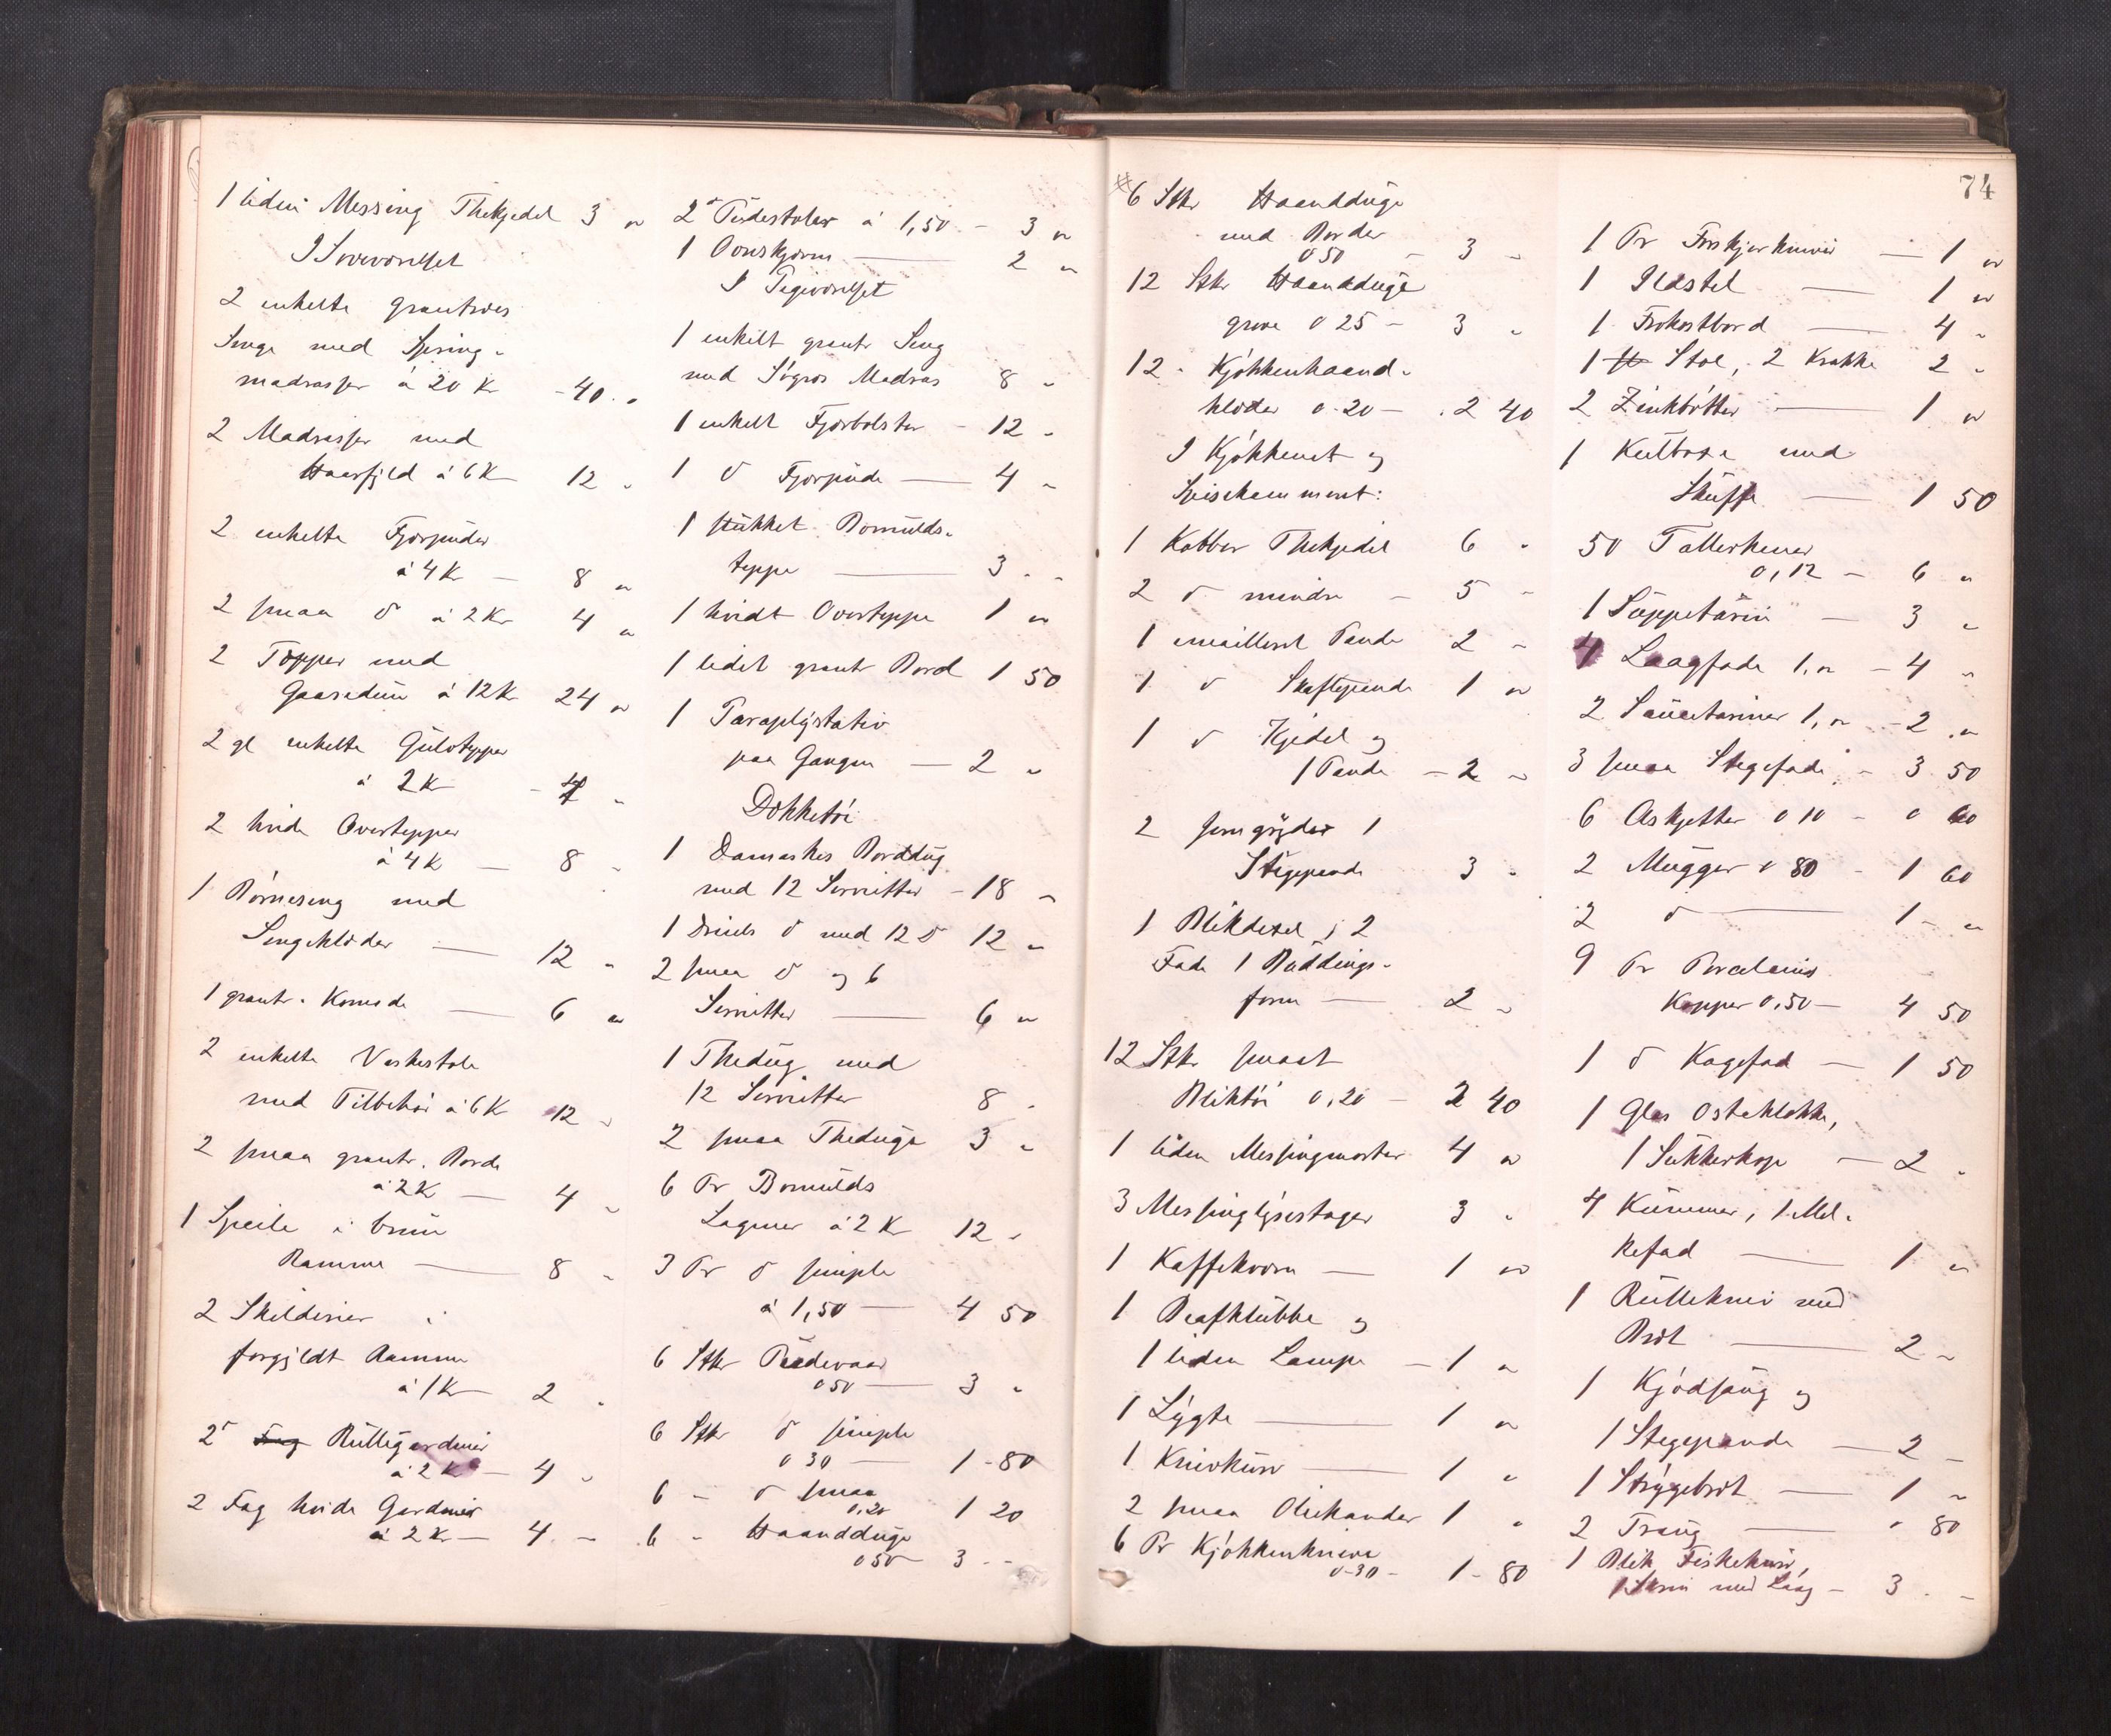 1 liden Messing Thekjedel 3 "
I Soveværelset
2 enkelte grantræes
Senge med Spring-
madrasser á 20 Kr - 40 "
2 Madrasser med
Haarfyld á 6 K 12 "
2 enkelte Fjærpuder
á 4 K — 8 "
2 smaa d á 2 Kr 4 "
2 Tæpper med
Gaasedun á 12 K 24 "
2 gl enkelte Gulvtepper
á 2 K - 4 "
2 hvide Overtepper
á 4 K — 8 "
1 Børneseng med
Sengeklæder — 12 "
1 grantr. Komode — 6 "
2 enkelte Vaskestole
med Tilbehør á 6 K 12 "
2 smaa grantr. Borde
á 2 K — 4 "
1 Speile i brun
Ramme — 8 "
2 Skilderier i
forgyldt Ramme
á 1 K — 2 "
2 Rullegardiner
á 2 K — 4 "
2 Fag hvide Gardiner
á 2 K — 4 "
2 Pudestoler á 1,50 - 3 "
1 Ovnskjærm — 2 "
I Pigeværelset
1 enkelt grantr Seng
med Madras 8 "
1 enkelt Fjærbolster - 12 "
1 d Fjærpude — 4 "
1 stukket Bomulds-
teppe — 3 "
1 hvidt Overteppe 1 "
1 lidet grant Bord 1 50
1 Paraplystativ
paa Gangen — 2 "
Dækketøi
1 Damaskes Borddug
med 12 Servietter - 18 "
1 Dreiels d med 12 d 12 "
2 smaa d og 6
Servietter — 6 "
1 Thedug med
12 Servietter 8 "
2 smaa Theduge 3 "
6 Pr Bomulds
Lagener á 2 Kr 12 "
3 Pr d simple
á 1,50 — 4 50
6 Stkr Pudevaar
0 50 — 3 "
6 Stkr d simple
0 30 — 1 - 80
6 - d smaa
0,20 1 20
6 " Haandduge
0 50 3 "
6 Stkr Haandduge
med Border
0 50 - 3 "
12 Stkr Haandduge
grove 0 25 - 3 "
12 - Kjøkkenhaand-
klæder 0 20 - 2 40
I Kjøkkenet og
Spisekammeret:
1 Kobber Thekjedel 6 "
2 d mindre - 5 "
1 emailleret Pande 2 "
1 d Skaftepande 1 "
1 d Kjedel og
1 Pande - 2 "
2 Jerngryder 1
Stegepande 3 "
1 Blikdexel, 2
Fade 1 Buddings-
form — 2 "
12 Stkr smaat
Bliktøi 0,20 - 2 40
1 liden Messingmorter 4 "
3 Messinglysestager 3 "
1 Kaffekværn — 1 "
1 Beafklubbe og
1 liden Lampe - 1 "
1 Lygte — 1 "
1 Knivkurv — 1 "
2 smaa Oliekander 1 "
6 Pr Kjøkkenknive
0-30 - 1 - 80
74
1 Pr Forskjærkniver — 1 "
1 Ildstel — 1 "
1 Frokostbord — 4 "
1 Stol, 2 Krakke 2 "
2 Zinkbøtter — 1 "
1 Kulboxe med
Skuffe — 1 50
50 Tallerkener
0,12 - 6 "
1 Suppeterin - 3 "
4 Laagfade 1," - 4 "
2 Sauceteriner 1," - 2 "
3 smaa Stegefade - 3 50
6 Askjetter 0 10 - 0 60
2 Mugger 0 80 - 1 60
2 d — 1 - "
9 Pr Porcelains
Kopper 0,50 - 4 50
1 d Kagefad — 1 50
1 Glas Osteklokke,
1 Sukkerkop - 2 "
4 Kummer, 1 Mel-
kefad — 1 "
1 Rullekniv med
Bræt — 2 "
1 Kjødsaug og
1 Stegepande — 2 "
1 Strygebræt — 1 "
2 Traug — " 80
1 Blik Fiskekurv,
1 Skrin med Laag - 3 "